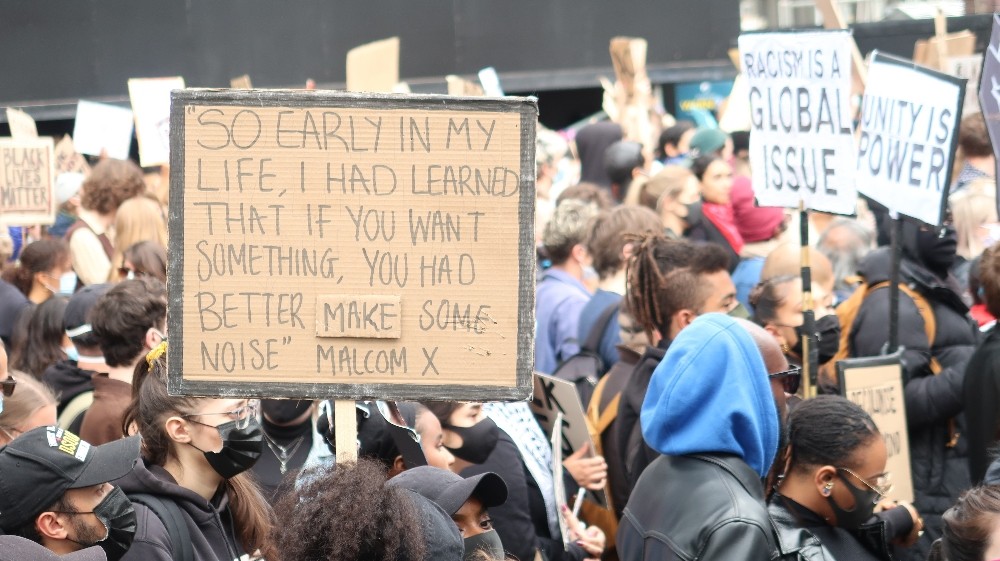 "SO EARLY IN MY
LIFE, I HAD LEARNED
THAT IF YOU WANT
SOMETHING, YOU HAD
BETTER MAKE SOME
NOISE" MALCOM X
BLACK
LIVES
MATTER
RACISM IS A
GLOBAL
ISSUE
UNITY IS
POWER